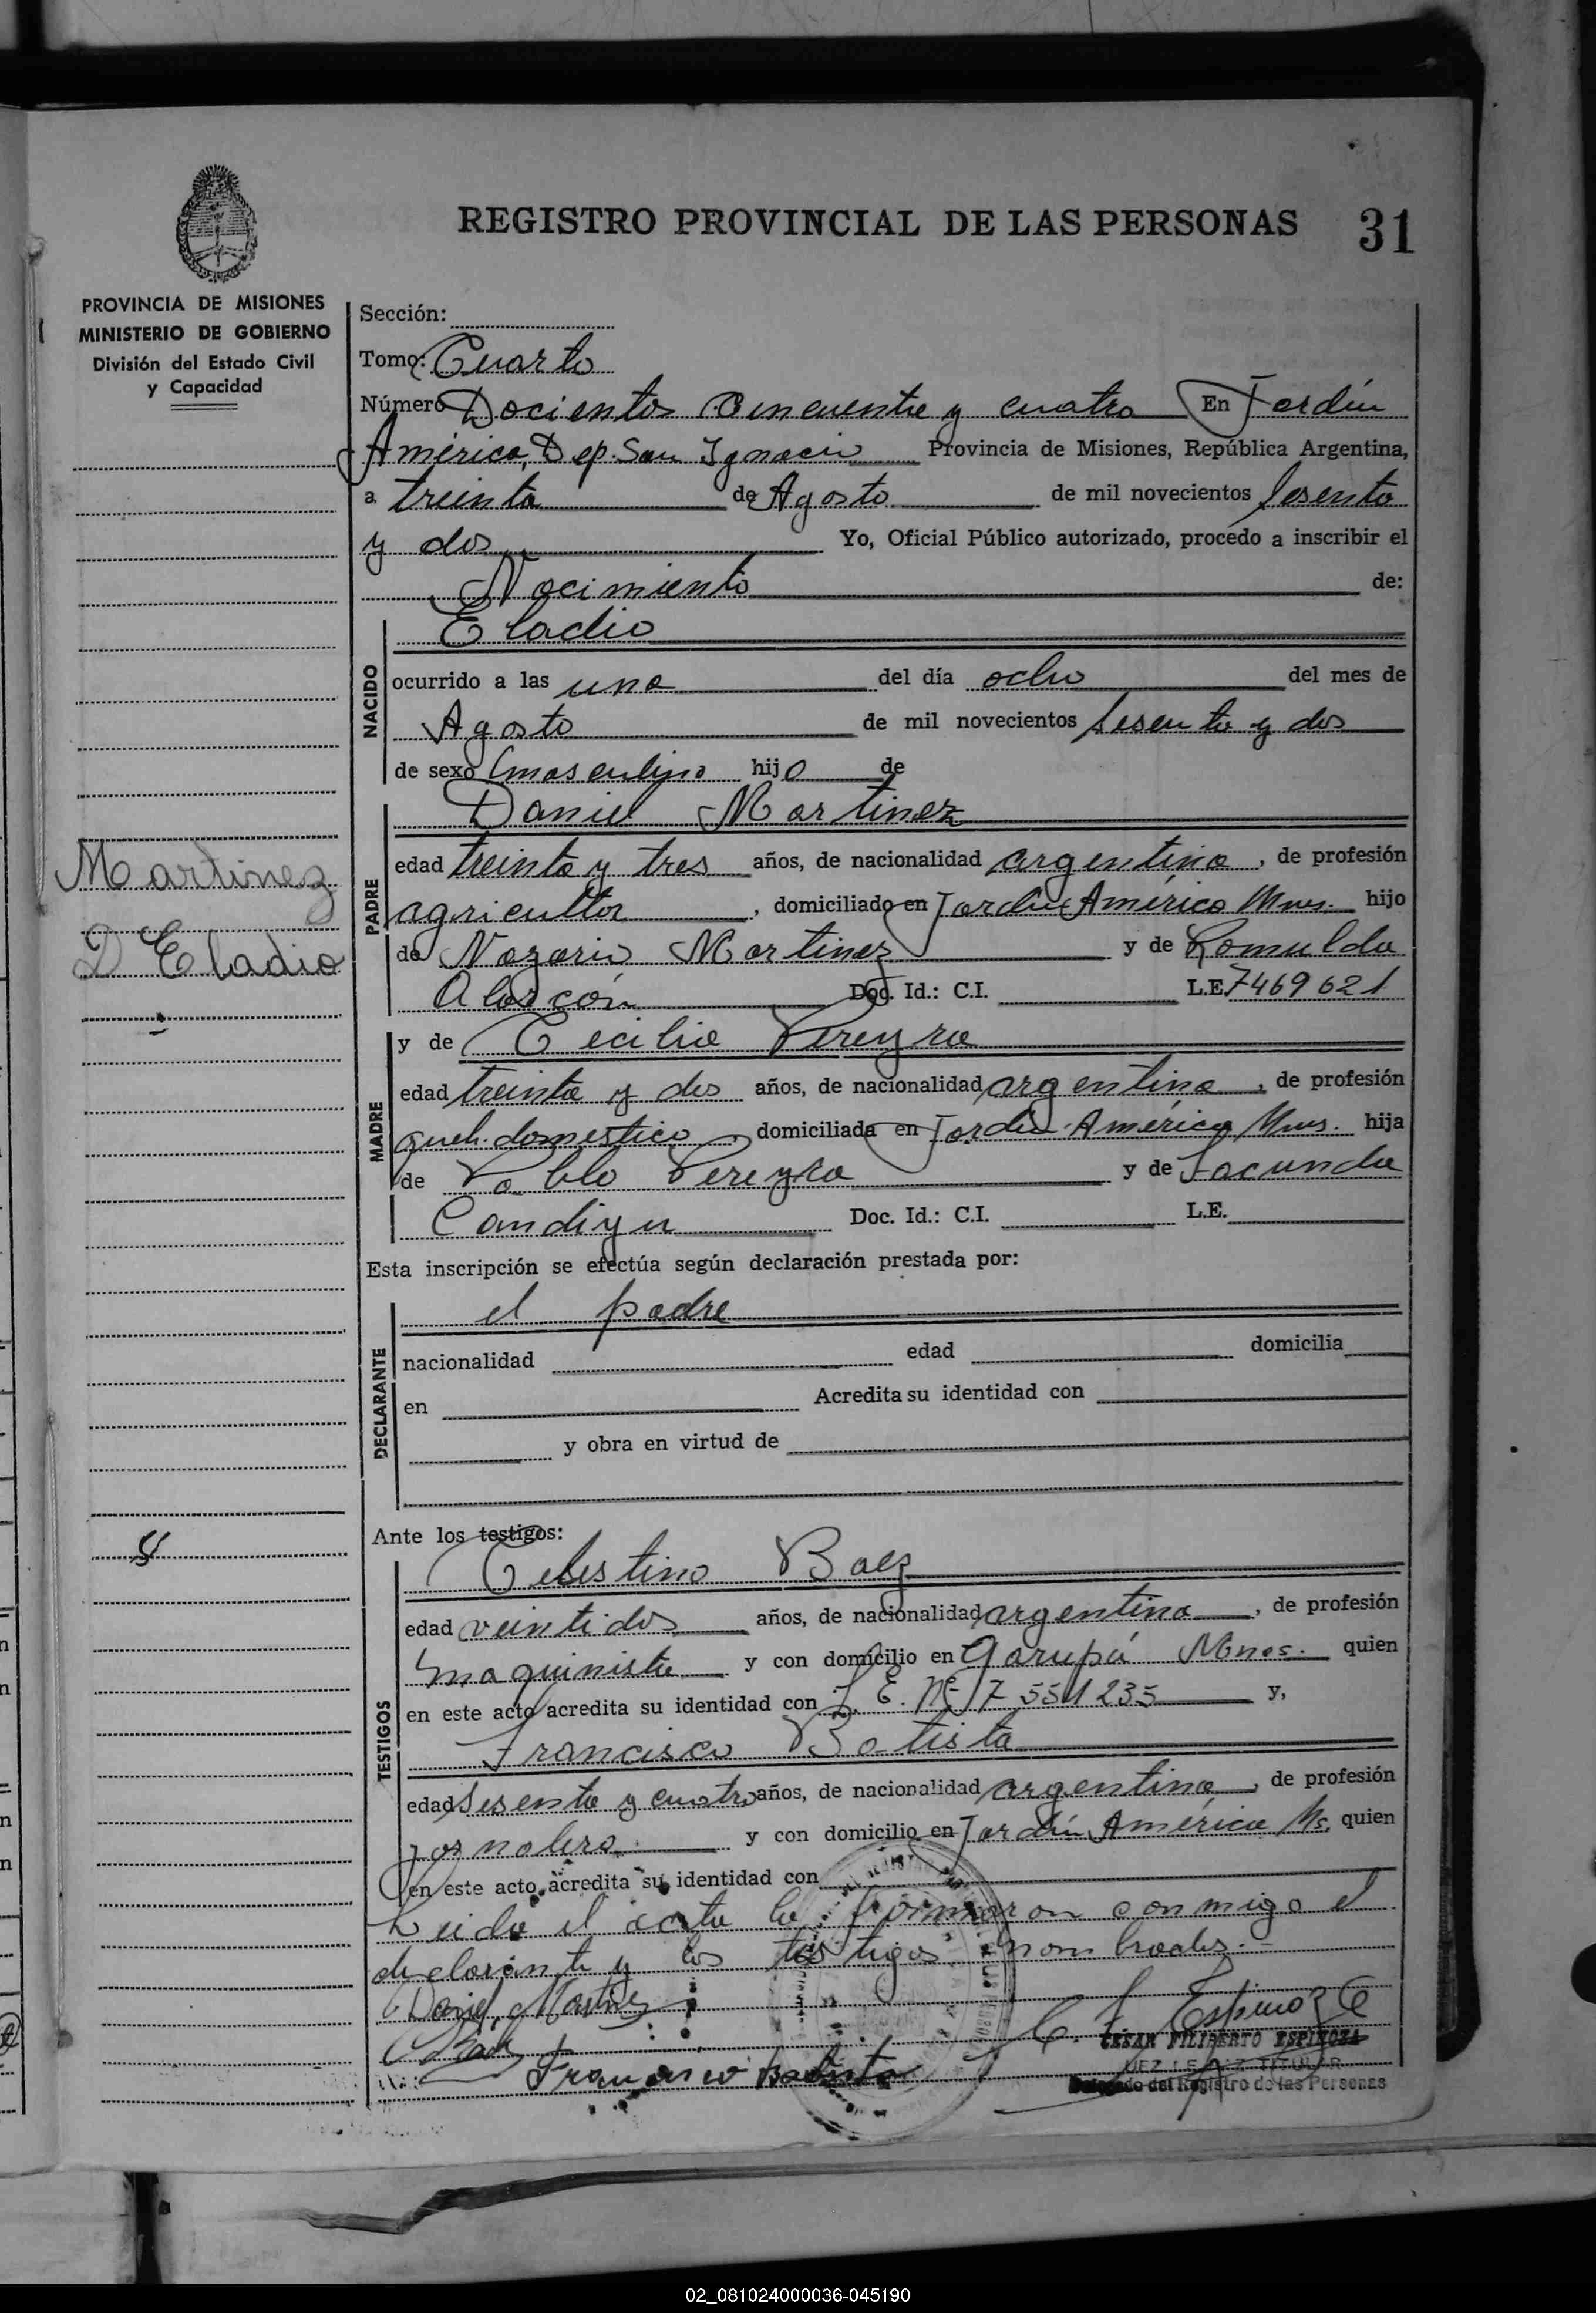 REGISTRO PROVINCIAL DE LAS PERSONAS 31
PROVINCIA DE MISIONES
MINISTERIO DE GOBIERNO
División del Estado Civil
y Capacidad
Martinez
D Eladio
Sección:
Tomo: Cuarto
Número Docientos Cincuenta y cuatro En Jardín
América, Dep. San Ignacio Provincia de Misiones, República Argentina,
a treinta de Agosto de mil novecientos sesenta
y dos Yo, Oficial Público autorizado, procedo a inscribir el
Nacimiento de:
NACIDO
Eladio
ocurrido a las una del día ocho del mes de
Agosto de mil novecientos sesenta y dos
de sexo masculino hijo de
PADRE
Daniel Martinez
edad treinta y tres años, de nacionalidad argentina, de profesión
agricultor, domiciliado en Jardín América Mnes. hijo
de Nazario Martinez y de Romulda
Alarcón Doc. Id.: C.I. L.E. 7469621
MADRE
y de Cecilia Pereyra
edad treinta y dos años, de nacionalidad argentina, de profesión
queh. domestico domiciliada en Jardín América Mnes. hija
de Pablo Pereyra y de Facunda
Candiyu Doc. Id.: C.I. L.E.
Esta inscripción se efectúa según declaración prestada por:
DECLARANTE
el padre
nacionalidad edad domicilia
en Acredita su identidad con
y obra en virtud de
Ante los testigos:
TESTIGOS
Celestino Baez
edad veintidos años, de nacionalidad argentina, de profesión
maquinista y con domicilio en Garupá Mnes. quien
en este acto acredita su identidad con L.E. Nº 7551235 y,
Francisco Batista
edad sesenta y cuatro años, de nacionalidad argentina, de profesión
jornalero y con domicilio en Jardín América Ms. quien
en este acto acredita su identidad con
Leida el acta la firmaron conmigo el
declarante y los testigos nombrados.
Daniel Martinez
C. F. Espinoza
CESAR FILIBERTO ESPINOZA
JUEZ DE PAZ TITULAR
Francisco Batista
Delegado del Registro de las Personas
02_081024000036-045190